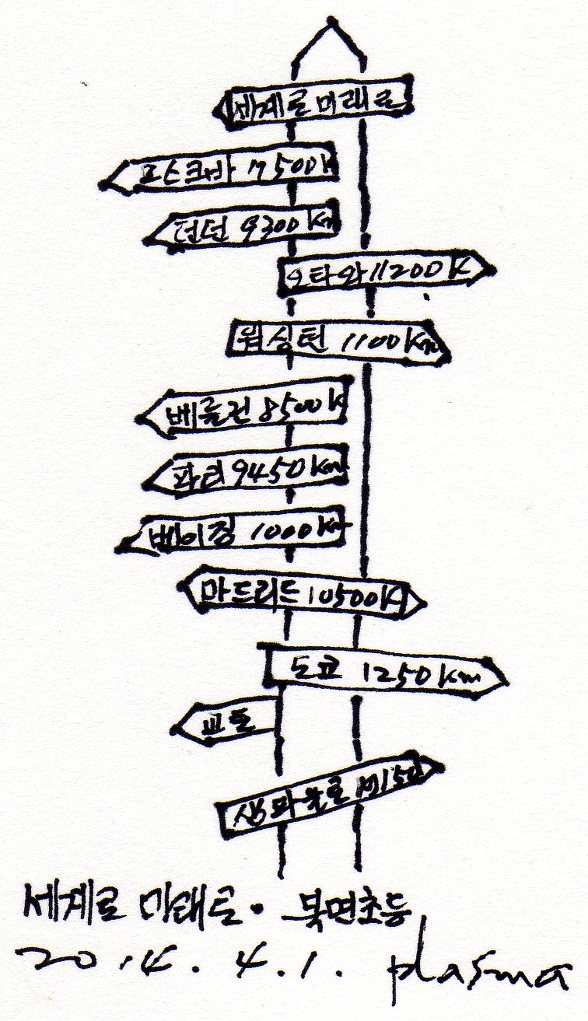 세계로 미래로
모스크바 7500K
런던 9300Km
오타와 11200K
워싱턴 1100Km
베를린 8500K
파리 9450Km
베이징 1000Km
마드리드 10500K
도쿄 1250Km
교토
상파울로
세계로 미래로. 북면초등
2014. 4. 1. plasma